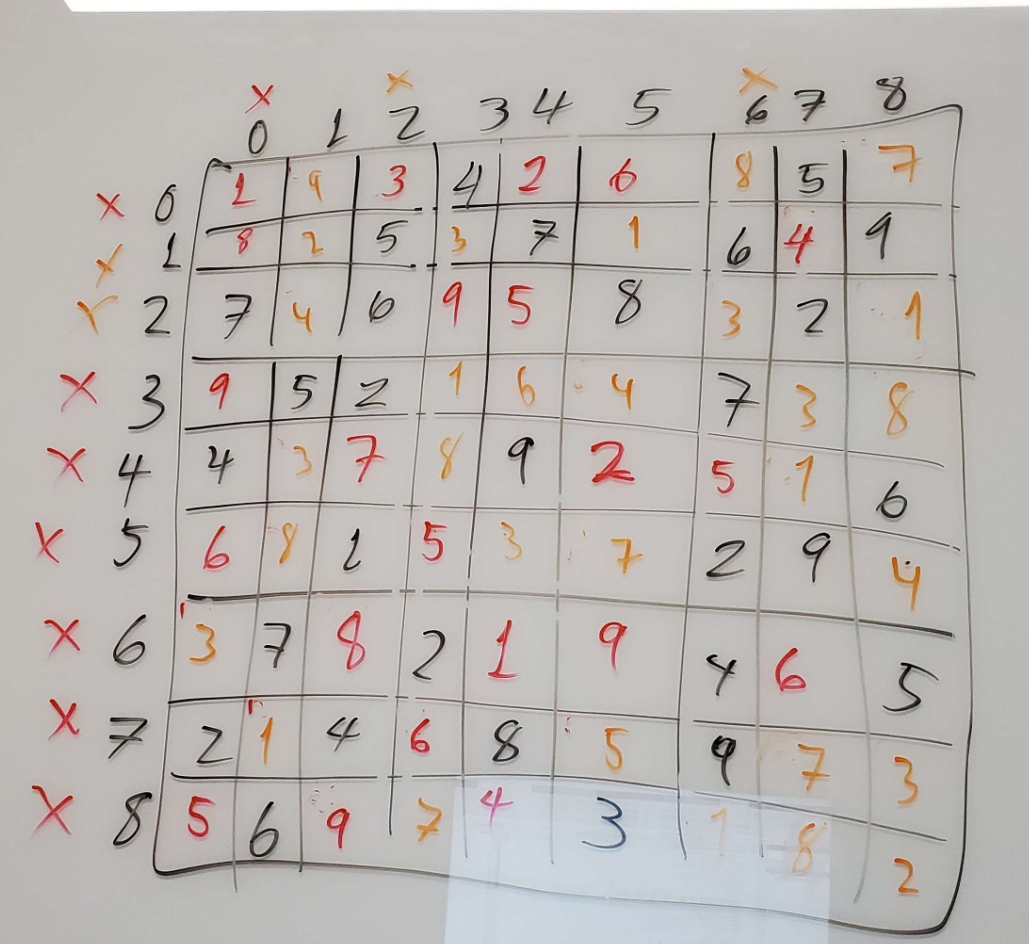 x x x
0 1 2 3 4 5 6 7 8
x 0 1 9 3 4 2 6 8 5 7
x 1 8 2 5 3 7 1 6 4 9
x 2 7 4 6 9 5 8 3 2 1
x 3 9 5 2 1 6 4 7 3 8
x 4 4 3 7 8 9 2 5 1 6
x 5 6 8 1 5 3 7 2 9 4
x 6 3 7 8 2 1 9 4 6 5
x 7 2 1 4 6 8 5 9 7 3
x 8 5 6 9 7 4 3 1 8 2